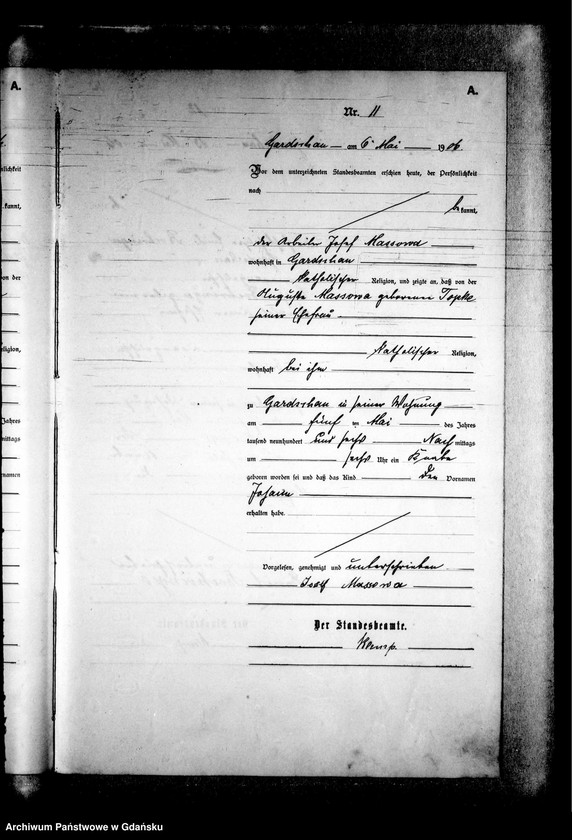 A.
A.
Nr. 11
Gardschau am 6 Mai 1906.
Vor dem unterzeichneten Standesbeamten erschien heute, der Persönlichkeit
nach
be kannt,
der Arbeiter Josef Massowa
wohnhaft in Gardschau
katholischer Religion, und zeigte an, daß von der
Auguste Massowa geborenen Topke
seiner Ehefrau
katholischer Religion,
wohnhaft bei ihm
zu Gardschau in seiner Wohnung
am fünf ten Mai des Jahres
tausend neunhundert und sechs Nach mittags
um sechs Uhr ein Knabe
geboren worden sei und daß das Kind den Vornamen
Johann
erhalten habe.
Vorgelesen, genehmigt und unterschrieben
Josef Massowa
Der Standesbeamte.
Archiwum Państwowe w Gdańsku